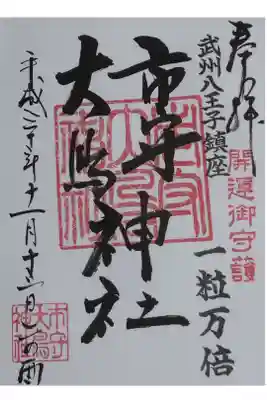 奉拝
開運御守護
武州八王子鎮座
一粒万倍
市守神社
大鳥神社
平成三十年十一月十三日 の酉
市守大鳥神社